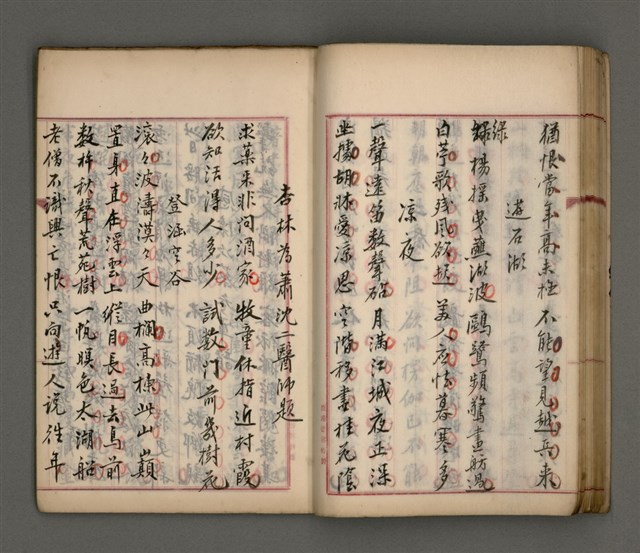 猶恨當年高未極不能望見越兵來
遊石湖
綠楊搖曳蘸湖波鷗鷺頻驚畫舫過
綠
白苧歌殘風欲起美人應怯暮寒多
涼夜
一聲遠笛數聲砧月滿江城夜正深
坐據胡牀愛涼思空階移盡桂花陰
杏林為蕭沈二醫師題
求藥來非問酒家牧童休指近村霞
欲知活得人多少試數門前幾樹花
登涵空谷
滾々波濤漠々天曲欄高棟此山巔
置身直在浮雲上縱目長過去鳥前
數杵秋聲荒苑樹一帆暝色太湖船
老僧不識興亡恨只向遊人說往年